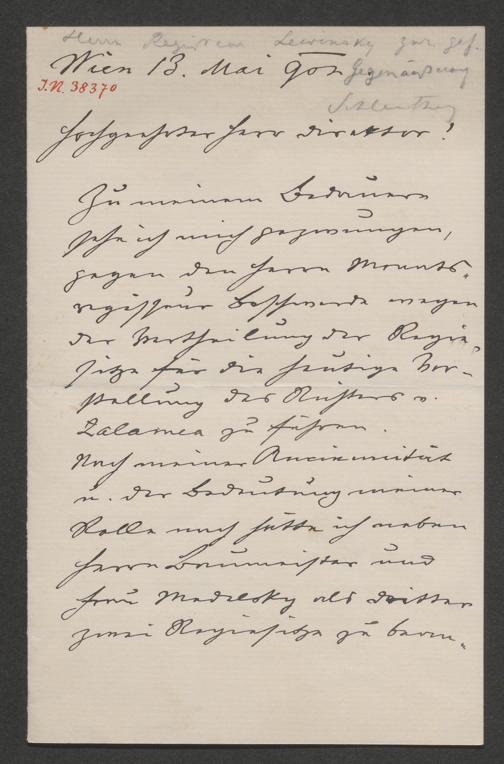 Herrn Regisseur Lewinsky zur gef.
Wien 13. Mai 902 Gegenäußerung
J.N. 38370
Schlenther
Hochgeehrter Herr Direktor!
Zu meinem Bedauern
sehe ich mich gezwungen,
gegen den Herrn Monats-
regisseur Beschwerde wegen
der Vertheilung der Regie-
sitze für die heutige Vor-
stellung des Richters v.
Zalamea zu führen.
Nach meiner Anciennität
u. der Bedeutung meiner
Rolle nach hätte ich neben
Herrn Baumeister und
Frau Medelsky als dritter
zwei Regiesitze zu bean-